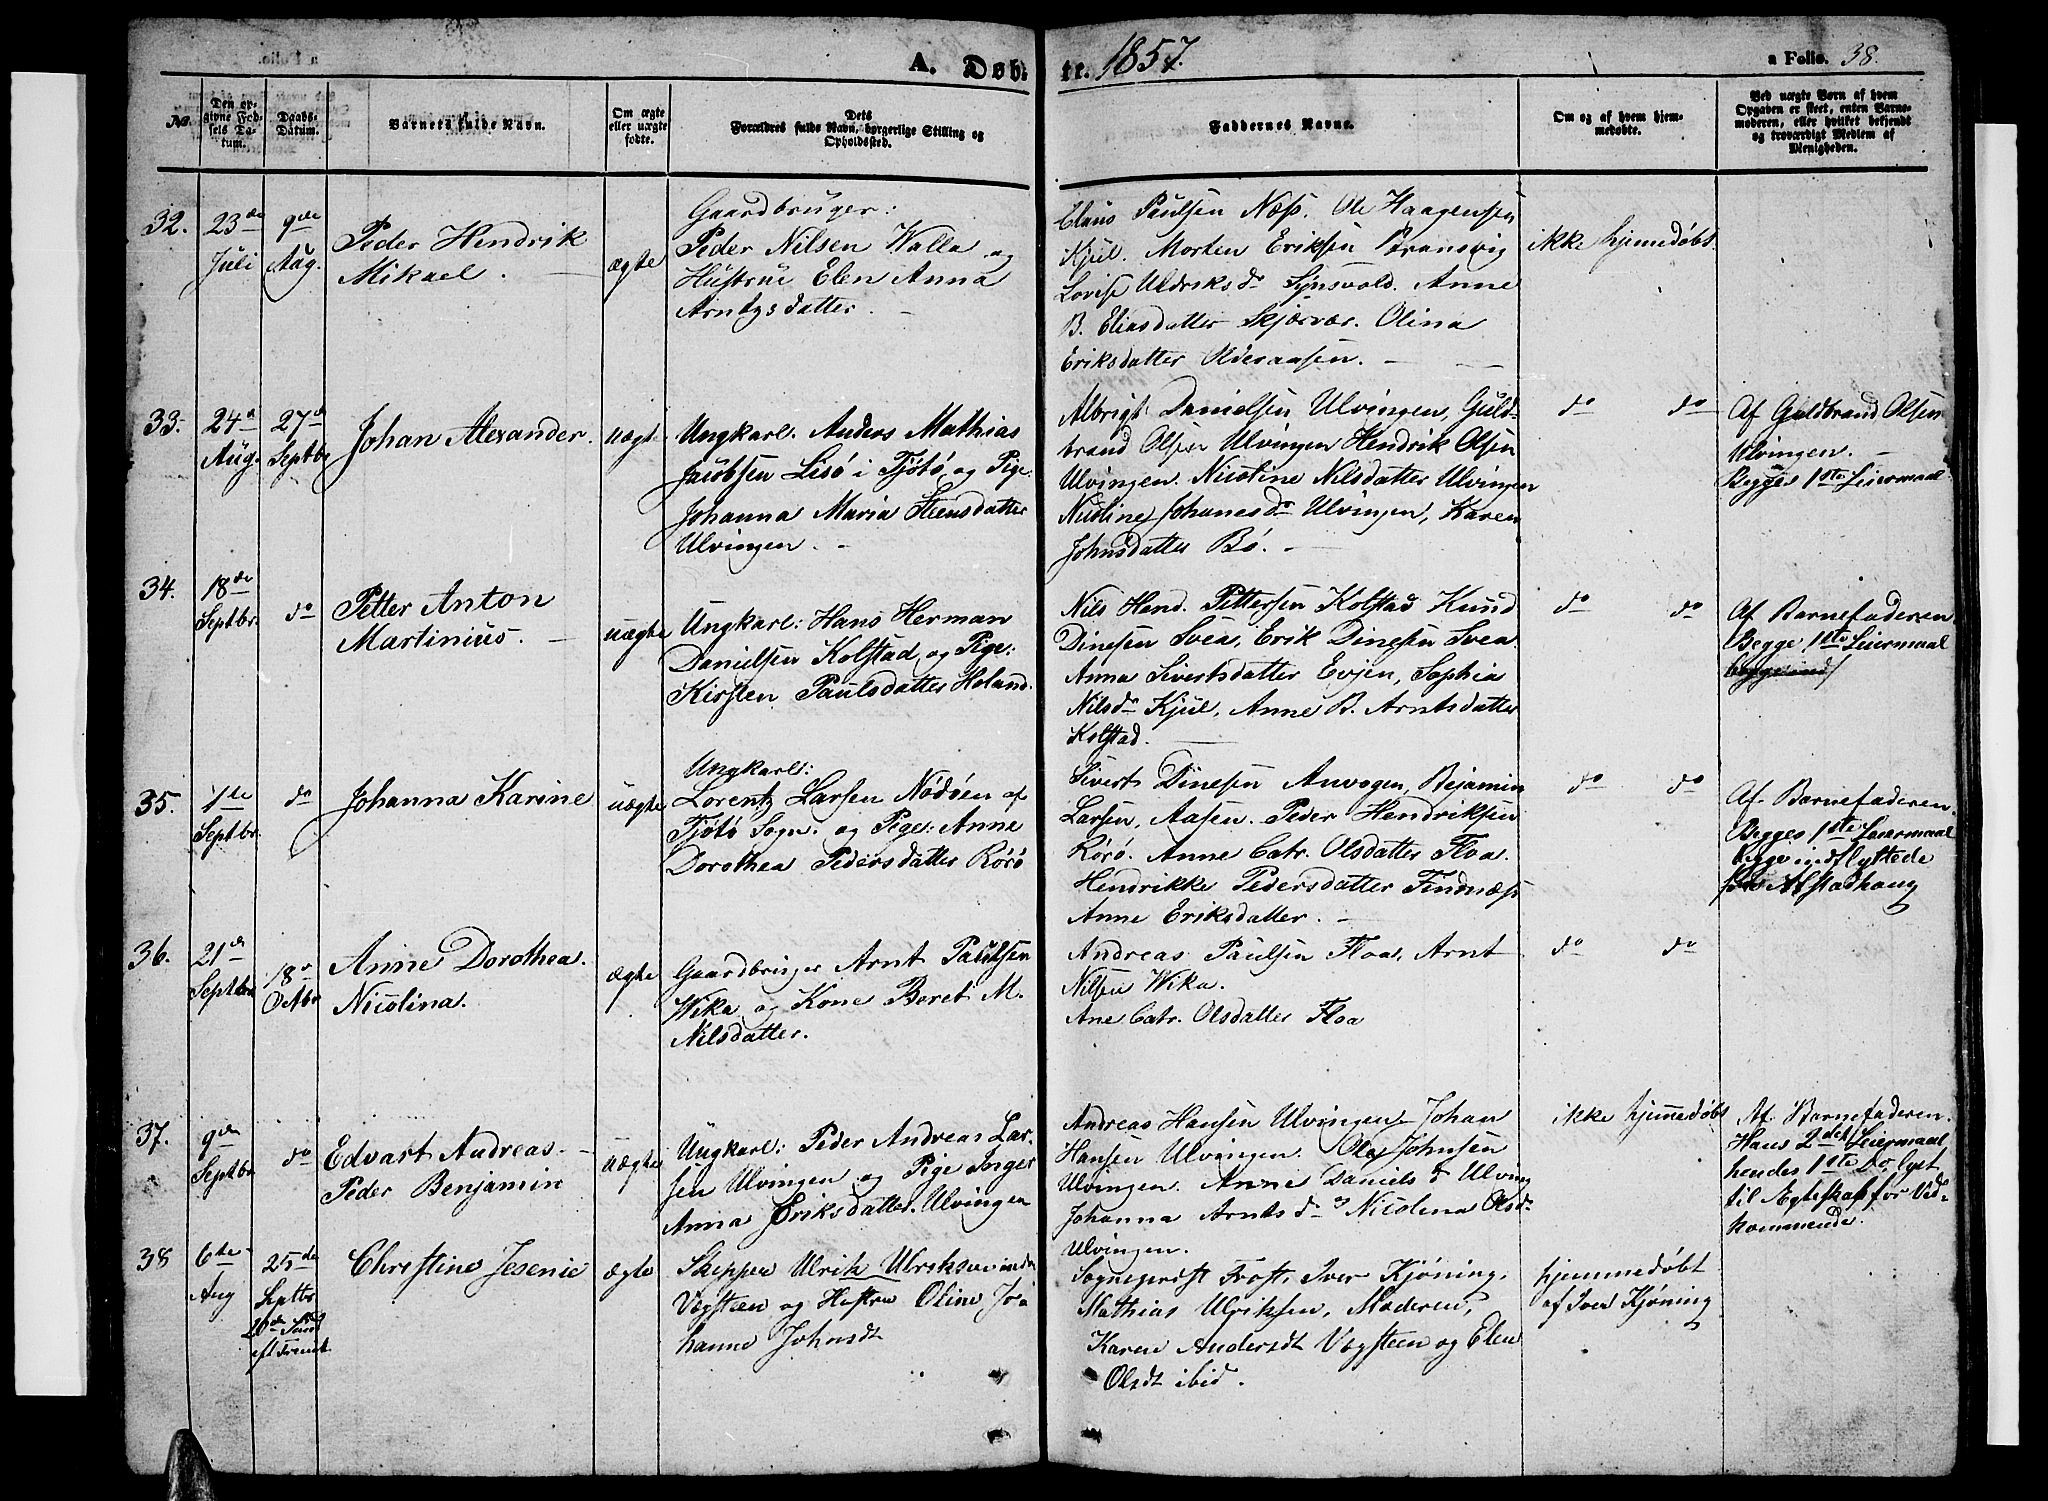 A. Døb-
te. 1857.
a Folio. 38.
No.
Den er-
givne Fød-
sels Da-
tum.
Daabs-
Datum.
Barnets fulde Navn.
Om ægte
eller uægte
fødte.
Dets
Forældres fulde Navn, borgerlige Stilling og
Opholdssted.
Faddernes Navne.
Om og af hvem hjem-
medøbte.
Ved uægte Børn af hvem
Opgaven er skeet, enten Barne-
moderen, eller hvilket bekjendt
og troværdigt Medlem af
Menigheden.
32.
23de
Juli
9de
Aug.
Peder Hendrik
Mikael.
ægte
Gaardbruger:
Peder Nilsen Walla og
Hustrue Elen Anna
Arntzsdatter.
Claus Paulsen Næss. Ole Haagensen
Kjul. Morten Eriksen Bransvig
Lovise Uldriksdr Synsvold. Anne
B. Eliasdatter Skjærvær. Olina
Eriksdatter Olderaasen.
ikke hjemmedøbt.
33.
24d
Aug.
27d
Septbr
Johan Alexander.
uægte
Ungkarl. Anders Mathias
Jacobsen Lisø i Tjøtø og Pige
Johanna Maria Steensdatter
Ulvingen.
Albrigt Danielsen Ulvingen, Guld-
brand Olsen Ulvingen Hendrik Olsen
Ulvingen. Nicoline Nilsdatter Ulvingen
Nicoline Johanesdr Ulvingen, Karen
Johnsdatter Bø.
do do
Af Guldbrand Olsen
Ulvingen.
Begges 1ste Leiermaal
34.
18de
Septbr.
do
Petter Anton
Martinius.
uægte
Ungkarl: Hans Herman
Danielsen Kolstad og Pige:
Kirsten Paulsdatter Holand.
Nils Hend. Pettersen Kolstad Knud
Dinesen Svea, Erik Dinesen Svea
Anna Sivertsdatter Evjen, Sophia
Nilsdr Kjul, Anne B. Arntsdatter
Kolstad.
do do
Af Barnefaderen
Begge 1ste Leiermaal
35.
1ste
Septbr.
do
Johanna Karine
uægte
Ungkarl:
Lorentz Larsen Nødøen af
Tjøtø Sogn. og Pige: Anne
Dorothea Pedersdatter Rørø
Sivert Dinesen Anvogen, Bejamin
Larsen, Aasen. Peder Hendriksen
Rørø. Anne Catr. Olsdatter Floa.
Hendrikke Pedersdatter Findnæss
Anne Eriksdatter.
do do
Af Barnefaderen.
Begges 1ste Leiermaal
begge indflyttede
fra Alstadhoug
36.
21de
Septbr
18de
Octbr
Anne Dorothea.
Nicolina.
ægte
Gaardbruger Arnt Paulsen
Wika og Kone Beret M.
Nilsdatter.
Andreas Paulsen Floa, Arnt
Nilsen Wika.
Ane Catr. Olsdatter Floa
do do
37.
9de
Septbr
do
Edvart Andreas
Peder Benjamin
uægte
Ungkarl: Peder Andreas Lar-
sen Ulvingen og Pige Inger
Anna Eriksdatter Ulvingen
Andreas Hansen Ulvingen Johan
Hansen Ulvingen. Ole Johnsen
Ulvingen. Anne Danielsd Ulving
Johanna Arntsdr og Nicolina Olsdr
Ulvingen.
ikke hjemmedøbt
Af. Barnefaderen.
Hans 2det Leiermaal
hendes 1ste Do lyst
til Ægteskab for Ved-
kommende.
38
6te
Aug
25de
Septbr
20de Sønd
eft Trinit.
Christine Jesenie
ægte
Skipper Ulrik Ulriksen
Vægsteen og Hustru Oline Jo-
hanne Johnsdt
Sogneprest Frost, Iver Kjøning,
Mathias Ulriksen, Moderen,
Karen Andersdt Vægsteen og Elen
Olsdt ibid.
hjemmedøbt
af Iver Kjøning